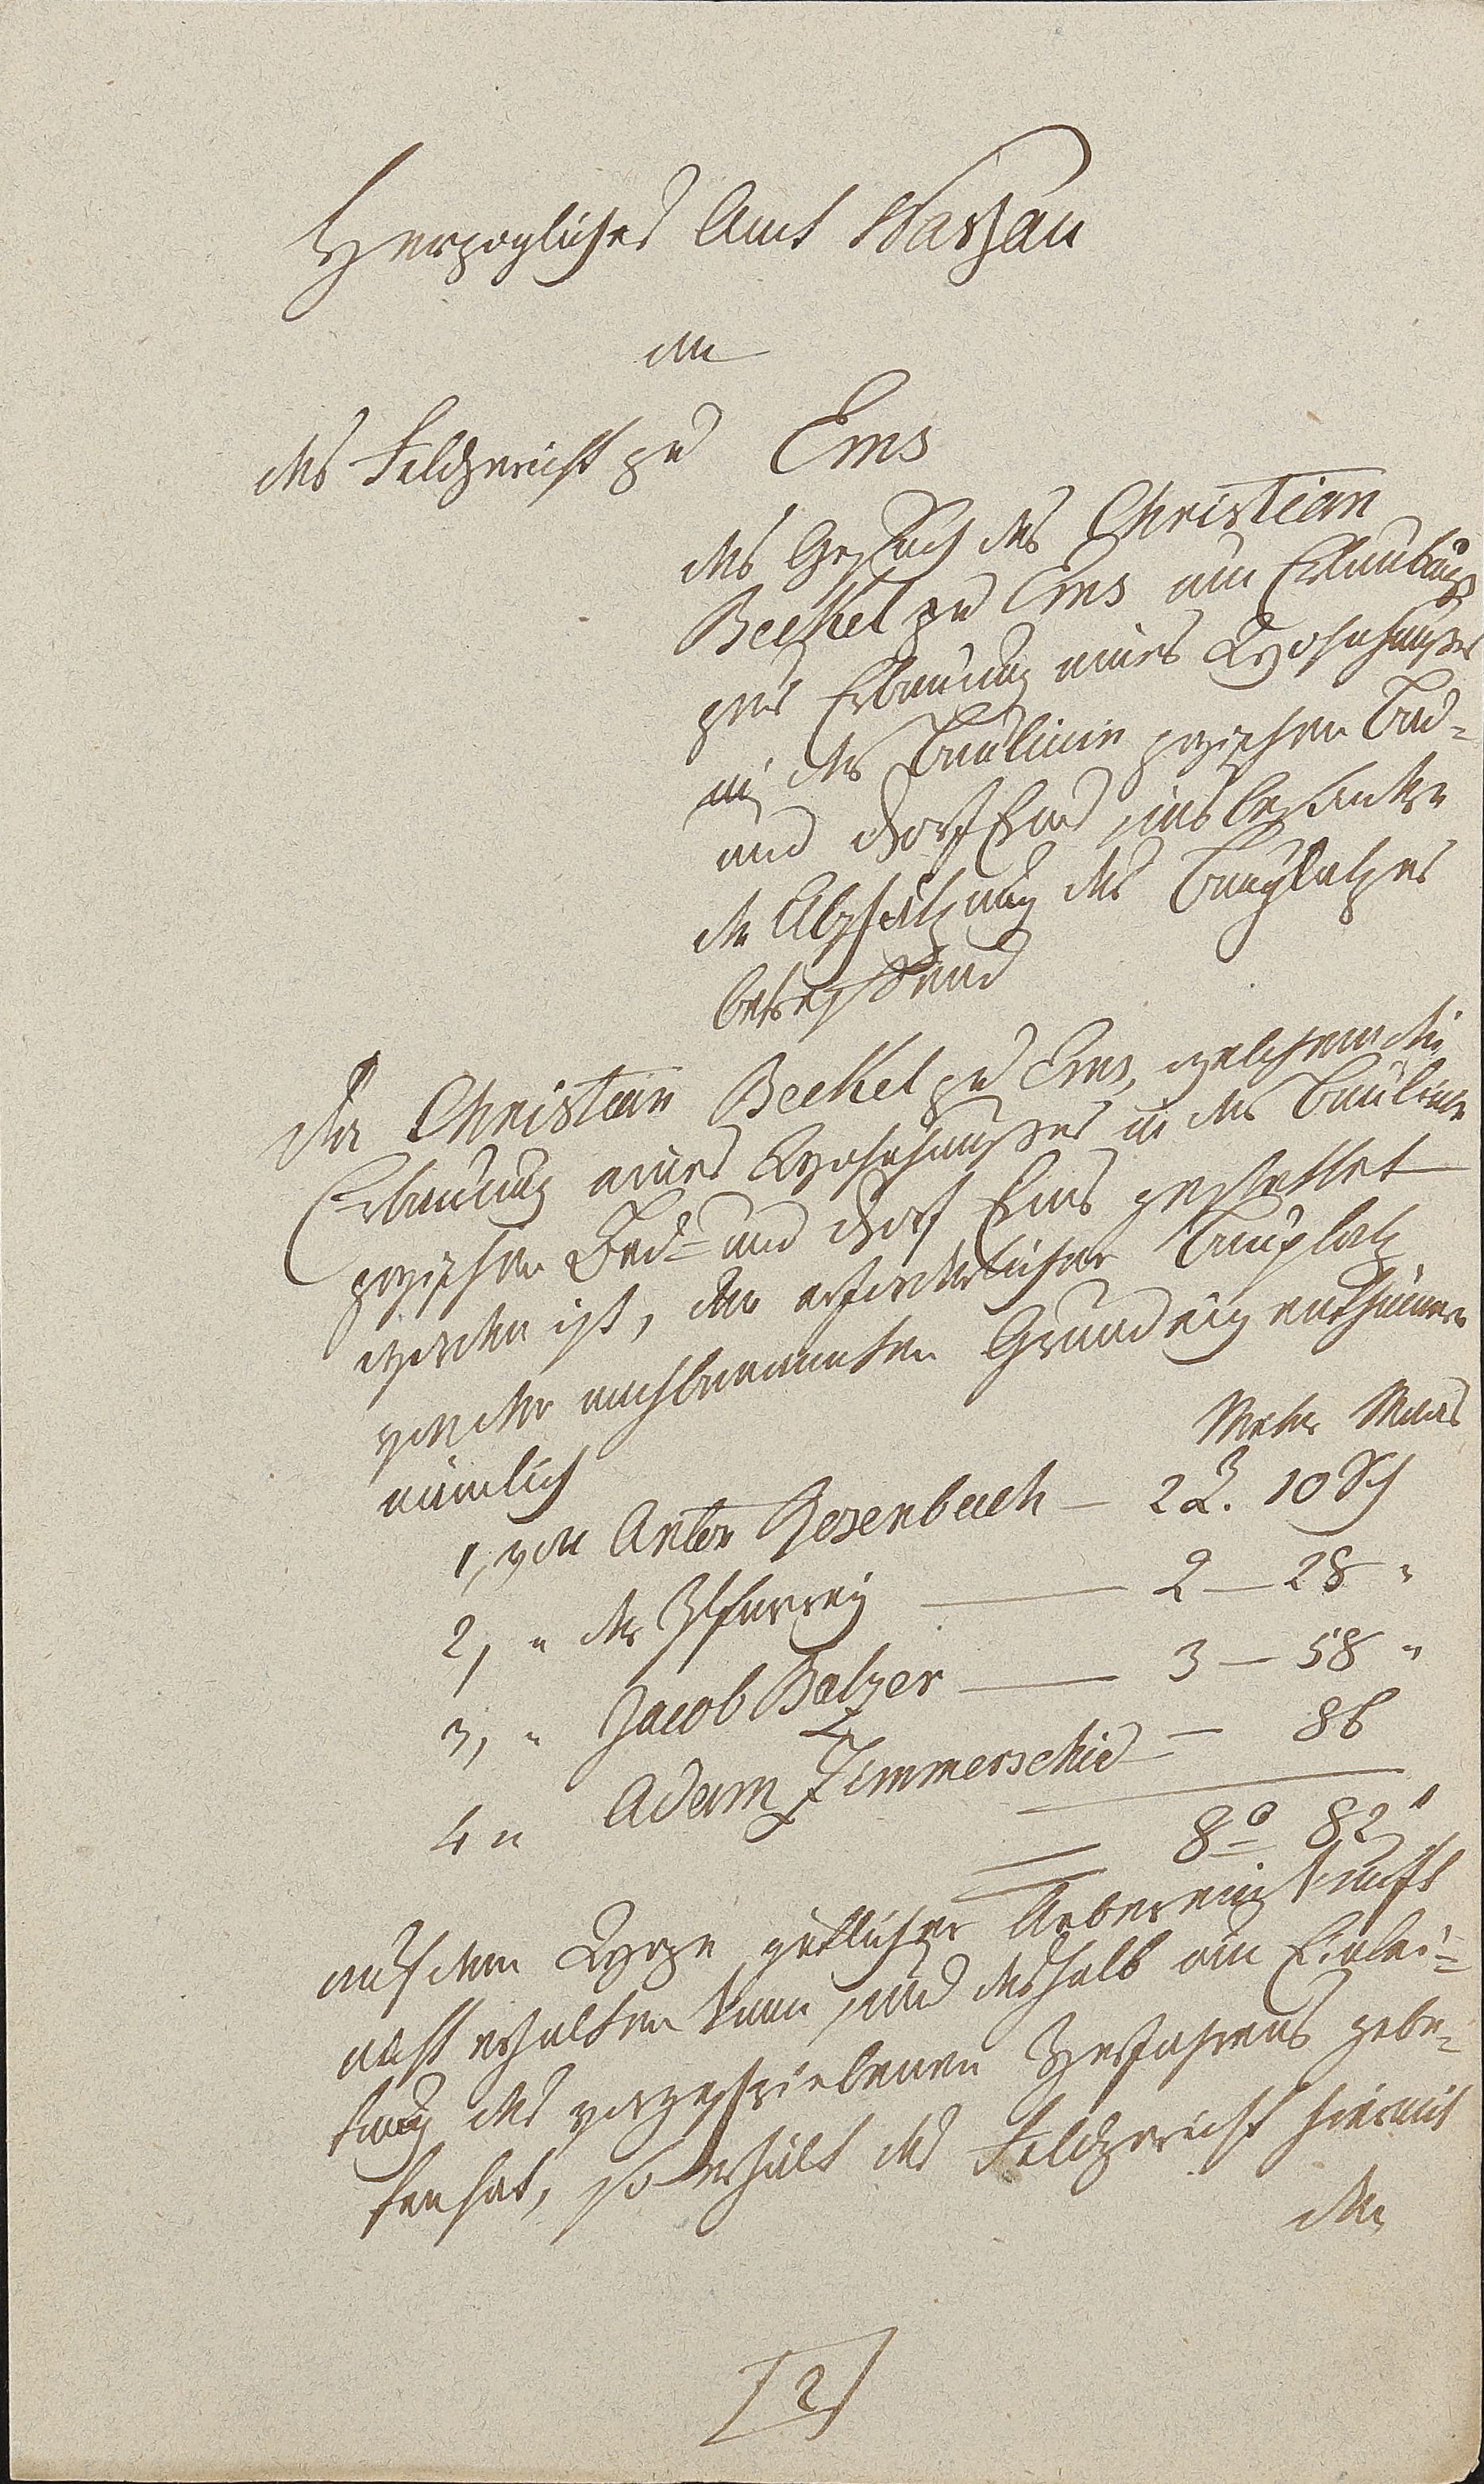 Herzogliches Amt Nassau
an
das Feldgericht zu Ems
das Gesuch des Christian
Beckel zu Ems um Erlaubniß
zur Erbauung eines Wohnhauses
in der Baulinie zwischen Bad-
und Dorf Ems, insbesondere
die Abschätzung des Bauplatzes
betreffend
Da Christian Beckel zu Ems, welchem die
Erbauung eines Wohnhauses in der Baulinie
zwischen Bad- und Dorf Ems gestattet
worden ist, den erforderlichen Bauplatz
von den nachbenannten Grundeigenthümern
nämlich
Metr Maas
1, von Anton Besenbach — 2 R. 10 Sch
2, " der Pfarrey — 2 — 28 "
3, " Jacob Balzer — 3 — 58 "
4 " Adam Zimmerschied — 86
8° 82'
auf dem Wege gütlicher Uebereinkunft
nicht erhalten kann und deshalb um Einlei-
tung des vorgeschriebenen Verfahrens gebe-
ten hat, so erhält das Feldgericht hiermit
den
2